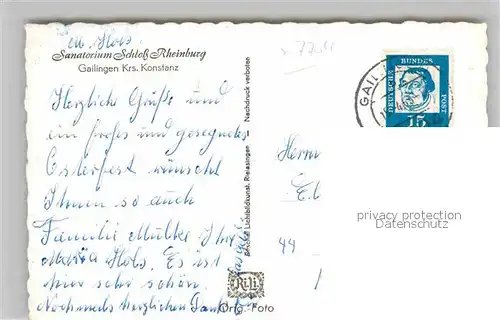 M. Hols.
Sanatorium Schloß Rheinburg
Gailingen Krs. Konstanz
Herzliche Grüße und
ein frohes und gesegnetes
Osterfest wünscht
Ihnen so auch
Familie Müller Ihre
Maria Hols. Es ist
hier sehr schön.
Nochmals herzlichen Dank
Nachdruck verboten
Lichtbildkunst, Rielasingen
RiLi
Orig. Foto
GAIL
DEUTSCHE BUNDES POST
15
Herrn
E
privacy protection
Datenschutz
44